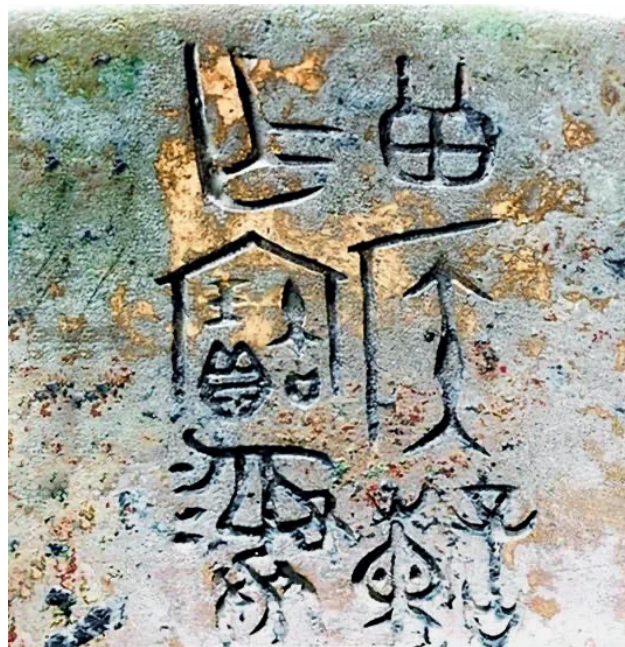 曾侯諫
作寶彝